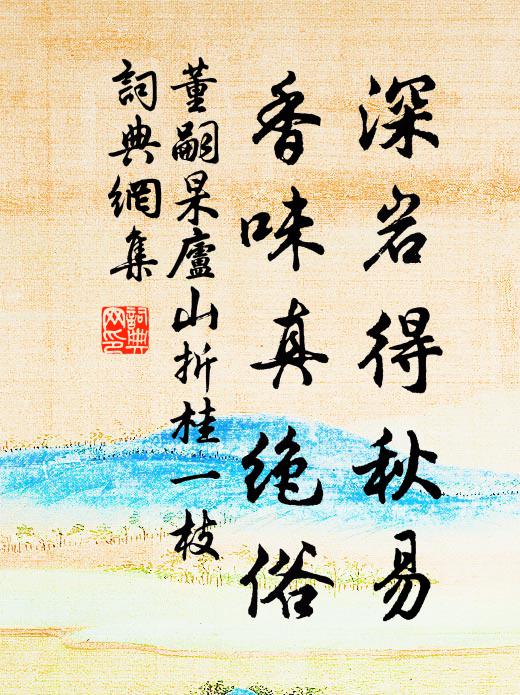 深岩得秋易
香味真绝俗
董嗣杲廬山折桂一枝
詞典網集
詞典网印